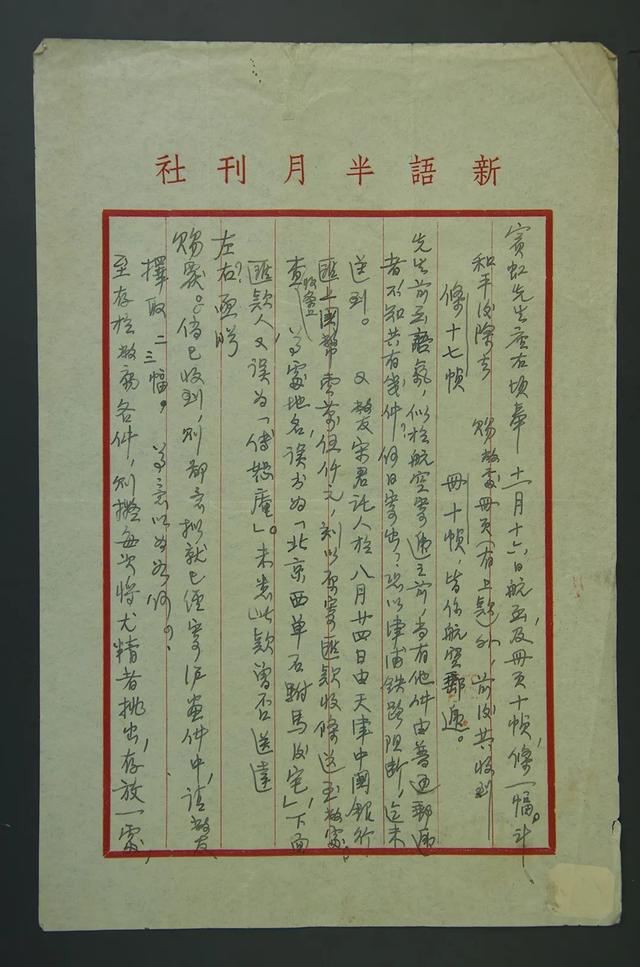 新語半月刊社
賓虹先生座右頃奉十一月十六日航函及冊頁十幀,條一幅。計
和平後除去賜敝處冊頁(有上款)外,前後共收到
條十七幀 冊十幀,皆係航空郵遞。
先生前函語氣,似於航空寄遞之前,尚有他件由普通郵遞
者不知共有幾件?何日寄出?恐以津浦鐵路阻斷,迄未
送到。又敝友宋君託人於八月廿四日由天津中國銀行
匯上國幣壹萬伍仟元,刻以原寄匯款收條送至敝處。
查收條上尊處地名,誤書為「北京西單石駙馬後宅」,下面
匯款人又誤為「傅怒庵」。未悉此款曾否送達
左右?面聆
賜覆。倘已收到,則鄙意擬就已經寄滬畫件中,請敝友
擇取二三幅。尊意以為如何?
至存於敝寓各件,則擬每次將尤精者挑出,存放一處,